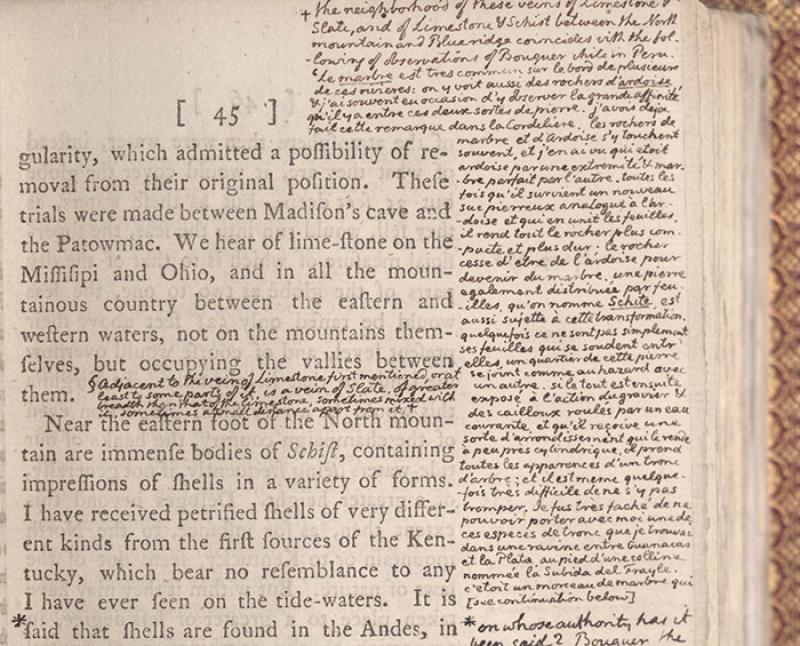 + the neighborhood of these veins of Limestone &
Slate, and of Limestone & Schist between the North
mountain and Blue ridge coincides with the fol-
-lowing of observations of Bouguer while in Peru.
'Le marbre est tres commun sur le bord de plusieurs
de ces rivieres: on y voit aussi des rochers d'ardoise,
& j'ai souvent eu occasion d'y observer la grande affinité
qu'il y a entre ces deux sortes de pierre. j'avois deja
fait cette remarque dans la Cordeliere. les rochers de
marbre et d'Ardoise s'y touchent
souvent, et j'en ai vu qui etoit
ardoise par une extremité & mar-
-bre parfait par l'autre. toutes les
fois qu'il survient un nouveau
suc pierreux analogue à l'ar-
-doise et qui en unit les feuilles,
il rend tout le rocher plus com-
-pacte et plus dur: le rocher
cesse d'etre de l'ardoise pour
devenir du marbre. une pierre
egalement distribuée par feu-
-illes, qu'on nomme Schite, est
aussi sujette à cette transformation.
quelquefois ce ne sont pas simplement
ses feuilles qui se soudent entr'
elles, un quartier de cette pierre
se joint comme au hazard avec
un autre. si le tout est ensuite
exposé à l'action du gravier &
des cailloux roulés par un eau
courante, et qu'il reçoive une
sorte d'arrondissement qui le rende
à peu près cylindrique, il prend
toutes les apparences d'un tronc
d'arbre; et il est meme quelque-
-fois tres difficile de ne s'y pas
tromper. Je fus tres faché de ne
pouvoir porter avec moi une de
ces especes de tronc que je trouvai
dans une ravine entre Guanacas
et la Plata, au pied d'une colline
nommée la Subida del Frayle.
c'etoit un morceau de marbre qui
[see continuation below]
[ 45 ]
gularity, which admitted a poſſibility of re-
moval from their original poſition. Theſe
trials were made between Madiſon's cave and
the Patowmac. We hear of lime-ſtone on the
Miſſiſipi and Ohio, and in all the moun-
tainous country between the eaſtern and
weſtern waters, not on the mountains them-
ſelves, but occupying the vallies between
them.
§ Adjacent to the vein of Limestone first mentioned, or at
least to some parts of it, is a vein of Slate, of greater
breadth than that of the limestone, sometimes mixed with
it, sometimes a small distance apart from it. +
Near the eaſtern foot of the North moun-
tain are immenſe bodies of Schiſt, containing
impreſſions of ſhells in a variety of forms.
I have received petrified ſhells of very differ-
ent kinds from the firſt ſources of the Ken-
tucky, which bear no reſemblance to any
I have ever ſeen on the tide-waters. It is
*ſaid that ſhells are found in the Andes, in
*on whose authority has it
been said? Bouguer the